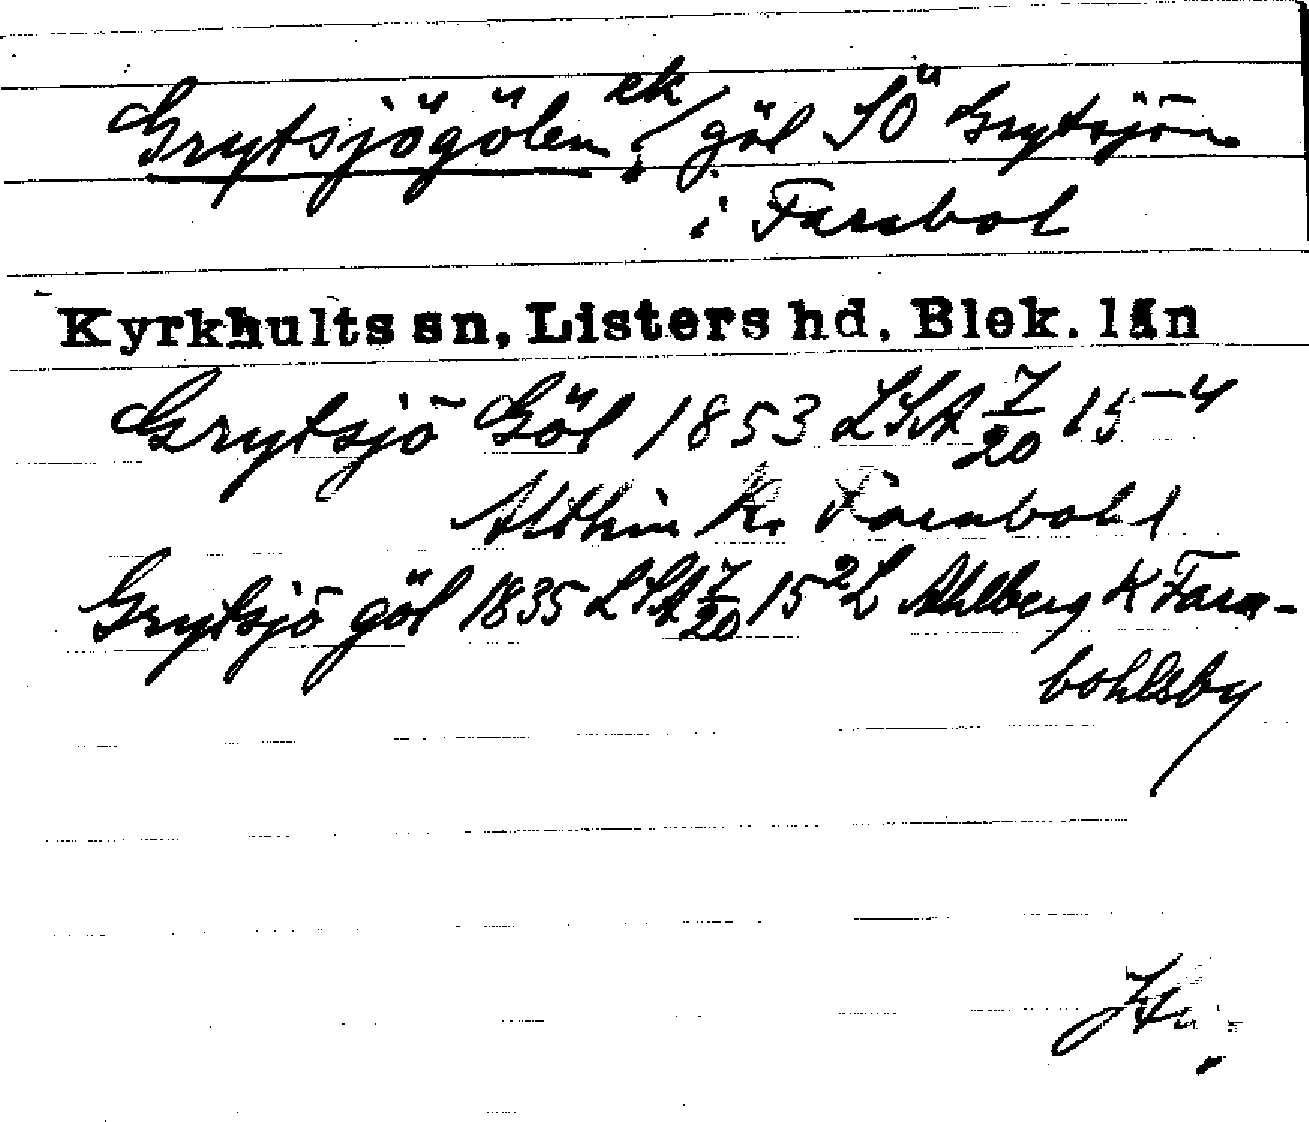 Grytsjögölen ek / göl SÖ Grytsjön
i Farabol
Kyrkhults sn, Listers hd, Blek. län
Grytsjö Göl 1853 LSA 7/20 15-4
Althin K. Farabohl
Grytsjö göl 1835 LSA 7/20 15 2 L Ahlberg K Fara-
bohlsby